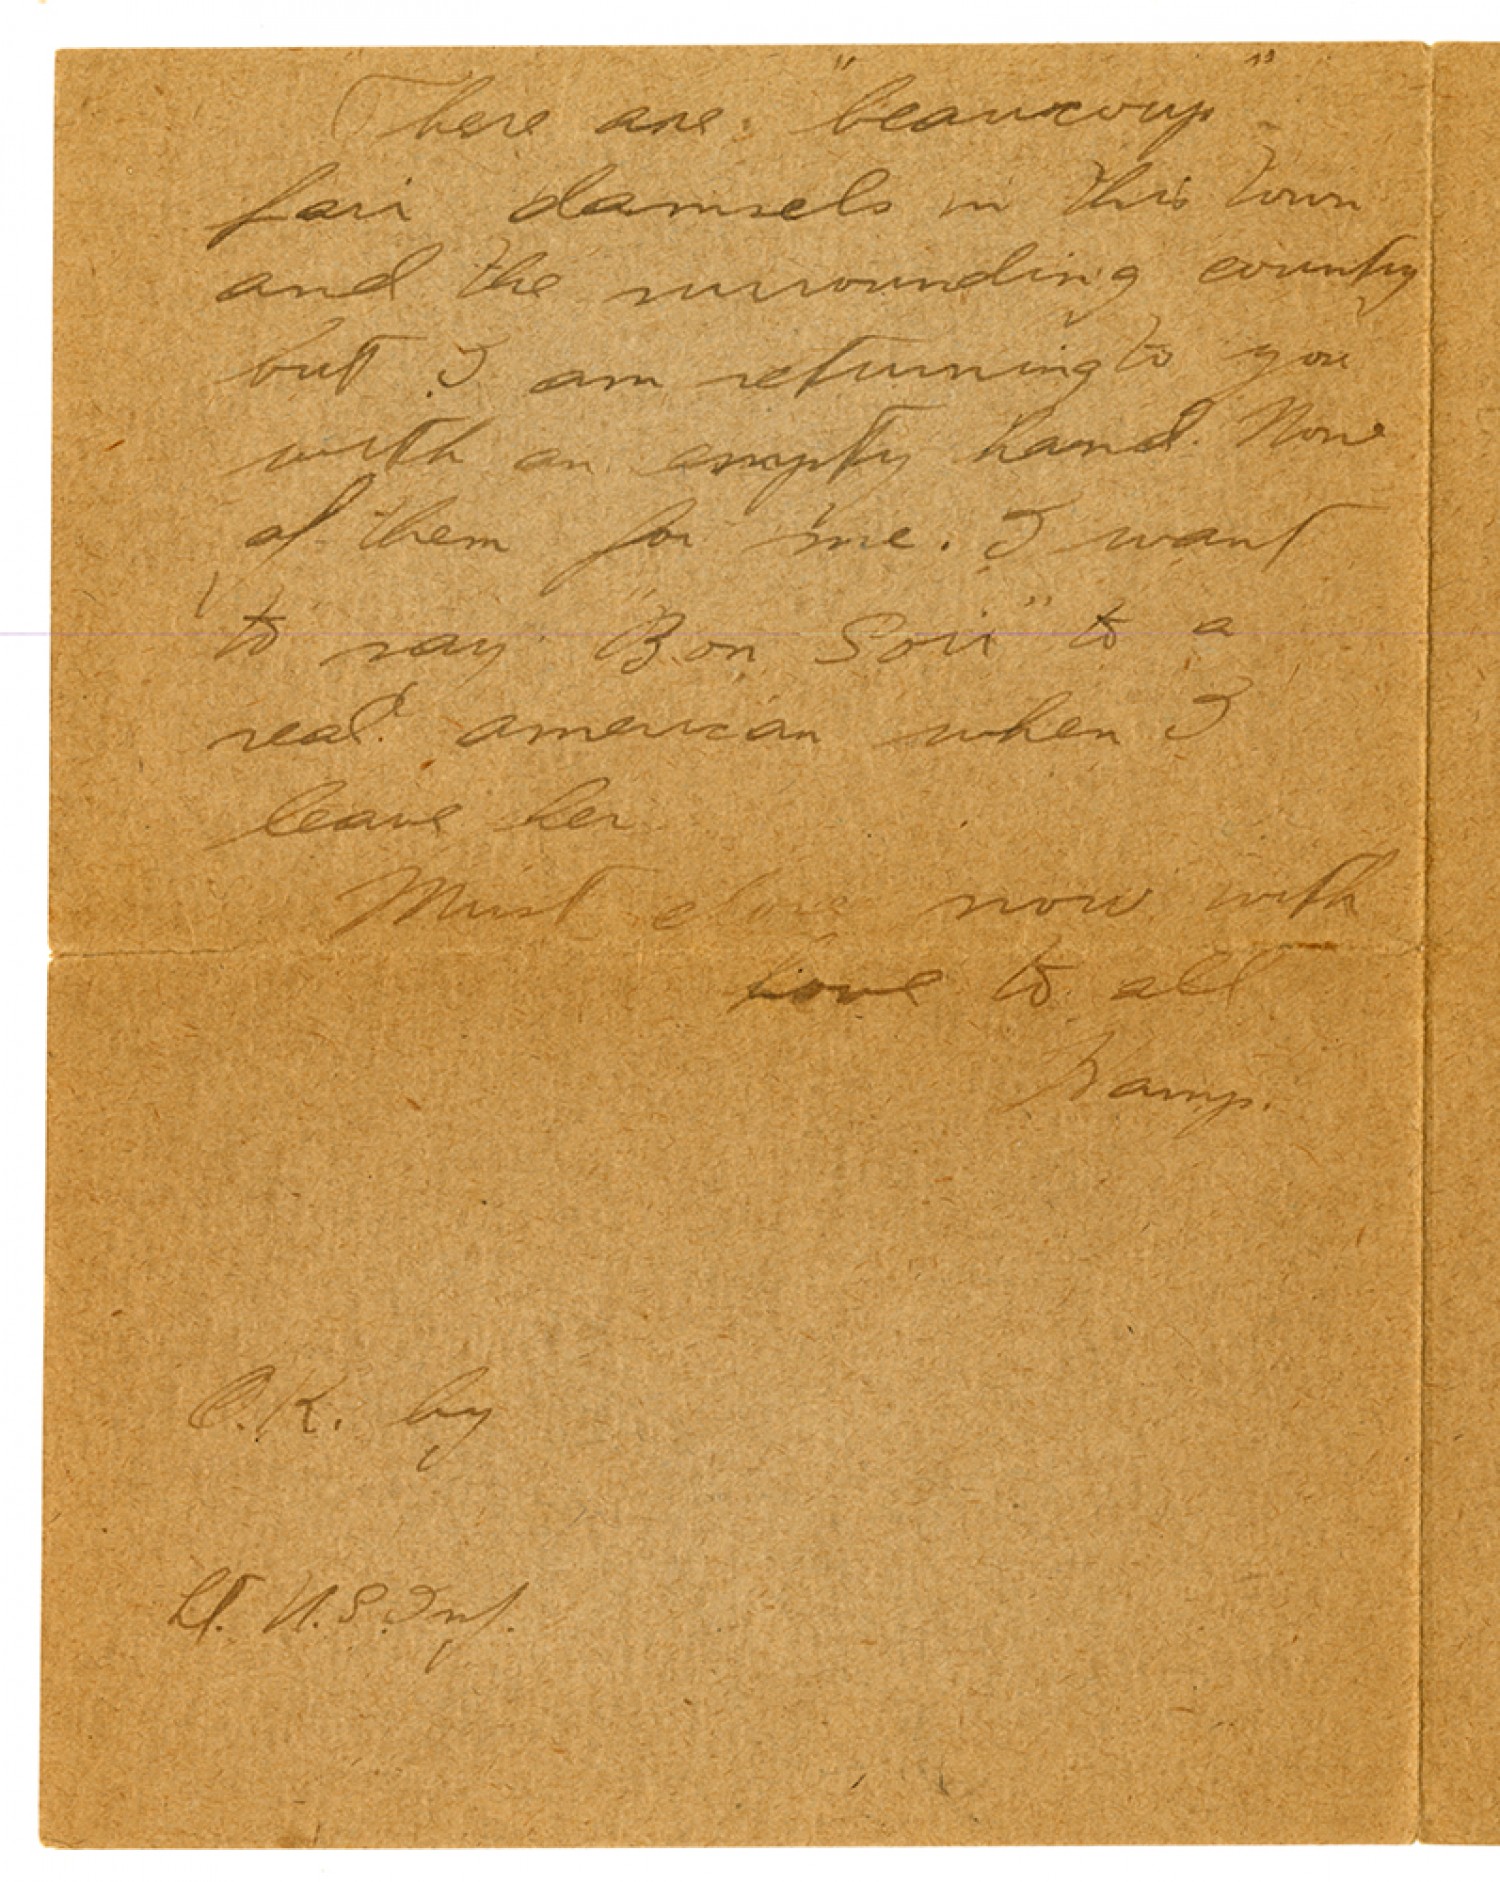 There are "beaucoup"
fair damsels in this town
and the surrounding country
but I am returning to you
with an empty hand. None
of them for me. I want
to say "Bon Soir" to a
real american when I
leave her.
Must close now with
Love to all
Kamp.
O.K. by
Lt. U.S. Inf.